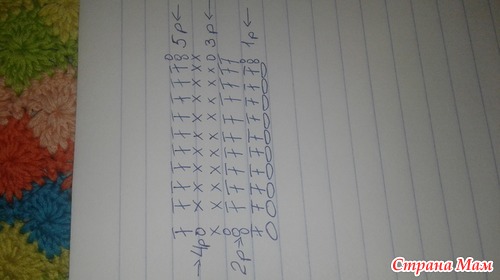 5р←
→4р
3р←
2р→
1р←
Страна Мам